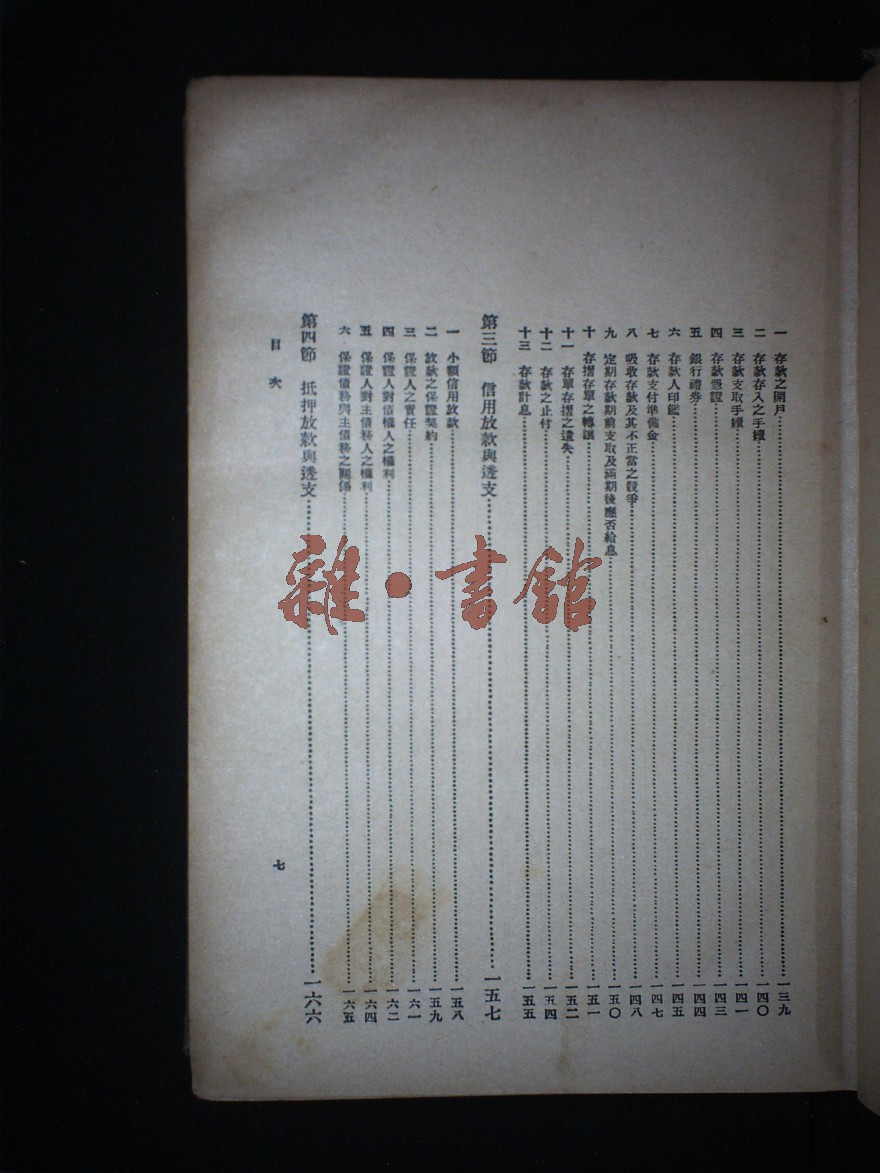 一　存款之開戶……一三九
二　存款存入之手續……一四〇
三　存款支取手續……一四一
四　存款憑證……一四三
五　銀行禮券……一四四
六　存款人印鑑……一四五
七　存款支付準備金……一四七
八　吸收存款及其不正當之競爭……一四八
九　定期存款期前支取及滿期後應否給息……一五〇
十　存摺存單之轉讓……一五一
十一　存單存摺之遺失……一五二
十二　存款之止付……一五四
十三　存款計息……一五五
第三節　信用放款與透支……一五七
一　小額信用放款……一五八
二　放款之保證契約……一五九
三　保證人之責任……一六一
四　保證人對債權人之權利……一六二
五　保證人對主債務人之權利……一六四
六　保證債務與主債務之關係……一六五
第四節　抵押放款與透支……一六六
目次
七
雜·書館